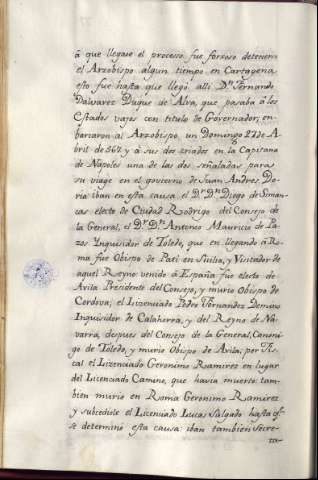 á que llegase el processo fue forzoso detenerse
el Arzobispo algun tiempo en Cartagena
esto fue hasta que llegó alli D.n Fernando
Dalvarez Duque de Alva, que pasaba á los
Estados vajos con titulo de Governador; en-
barcaron al Arzobispo, un Domingo 27 de A-
bril de 567 y á sus dos criados en la Capitana
de Napoles una de las dos señaladas para
su viage en el govierno de Juan Andres Do-
ria iban en esta causa el D.r D.n Diego de Siman-
cas electo de Ciudad Rodrigo del Consejo de
la General, el D.r D.n Antonio Mauricio de Pa-
zos Inquisidor de Toledo, que en llegando á Ro-
ma fue Obispo de Pati en Sicilia, y Visitador de
aquel Reyno venido á España fue electo de
Avila Presidente del Consejo, y murio Obispo de
Cordova; el Lizenciado Pedro Fernandez Temiño
Inquisidor de Calaherra, y del Reyno de Na-
varra despues del Consejo de la General, Canoni-
go de Toledo, y murio Obispo de Avila; por Fis-
cal el Lizenciado Geronimo Rramirez en lugar
del Licenciado Camino, que havia muerto tam-
bien murio en Roma Geronimo Ramirez
y subcedile el Licenciado Lucas Salgado hasta q.e
se determinó esta causa iban tambien Secre-